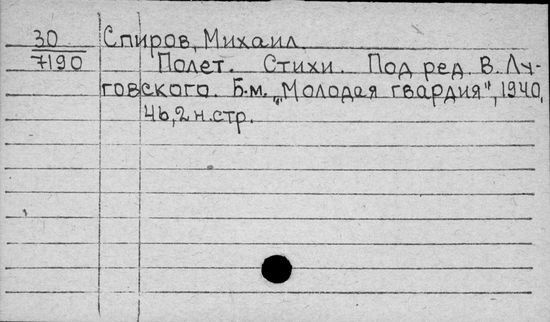 30 Спиров, Михаил.
7190 Полет. Стихи. Под ред. В. Лу-
говского. Б.м. „Молодая гвардия", 1940,
46, 2 н.стр.